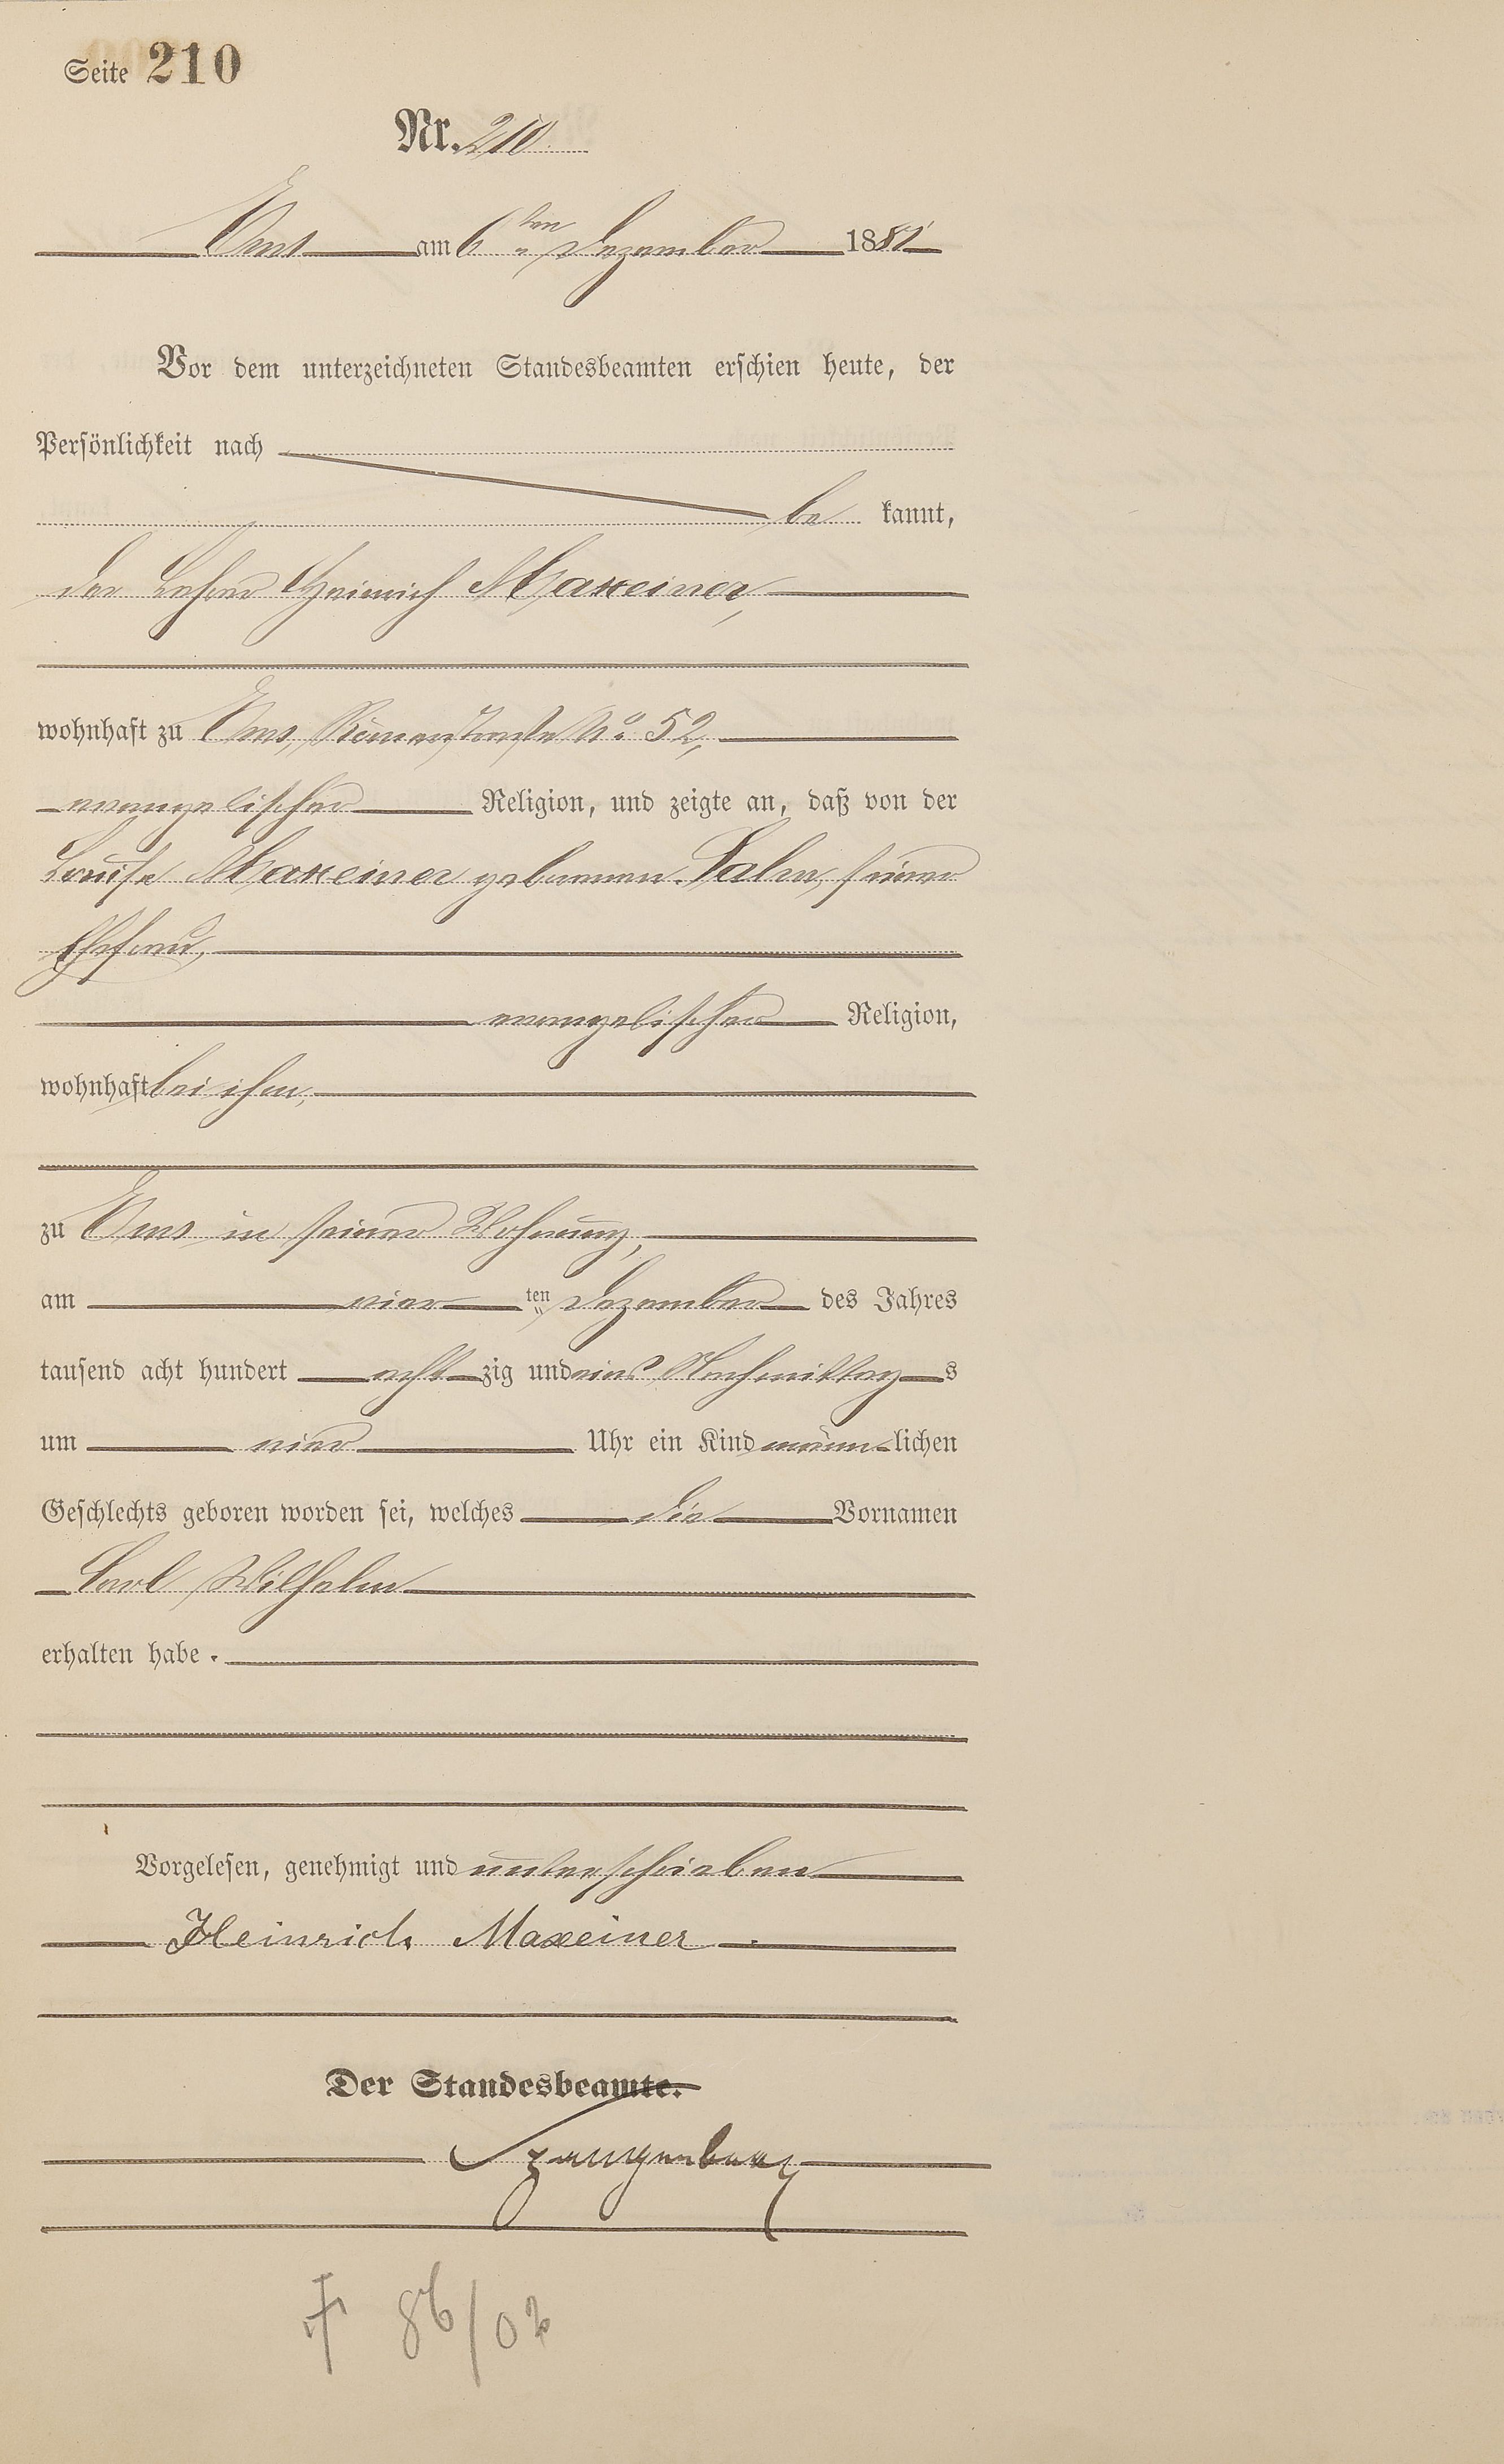 Seite 210
Nr. 210
Ems am 6ten Dezember 1881
Vor dem unterzeichneten Standesbeamten erschien heute, der
Persönlichkeit nach
be kannt,
der Lehrer Heinrich Maxeiner,
wohnhaft zu Ems, Römerstraße No. 52,
evangelischer Religion, und zeigte an, daß von der
Louise Maxeiner geborenen Salm, seiner
Ehefrau,
evangelischer Religion,
wohnhaft bei ihm,
zu Ems in seiner Wohnung,
am vier ten Dezember des Jahres
tausend acht hundert acht zig und eins Nachmittag s
um vier Uhr ein Kind männ lichen
Geschlechts geboren worden sei, welches die Vornamen
Carl Wilhelm
erhalten habe.
Vorgelesen, genehmigt und unterschrieben
Heinrich Maxeiner
Der Standesbeamte.
Spangenberg
† 86/02